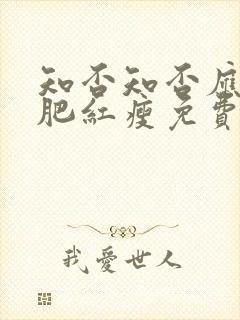 知否知否應
肥紅瘦免費
我愛世人